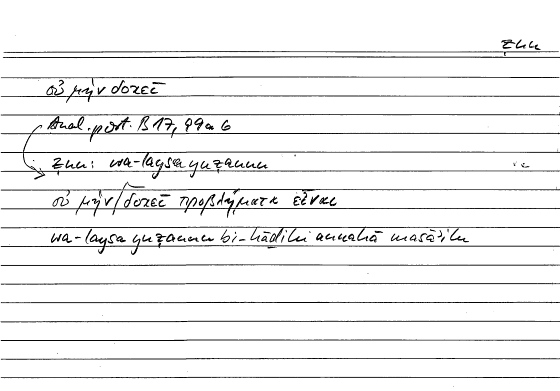 ẓnn
οὐ μὴν δοκεῖ
Anal. post. B 17, 99a 6
ẓnn: wa-laysa yuẓannu
οὐ μὴν δοκεῖ προβλήματα εἶναι
wa-laysa yuẓannu bi-hāḏihi annahā masāʾilu